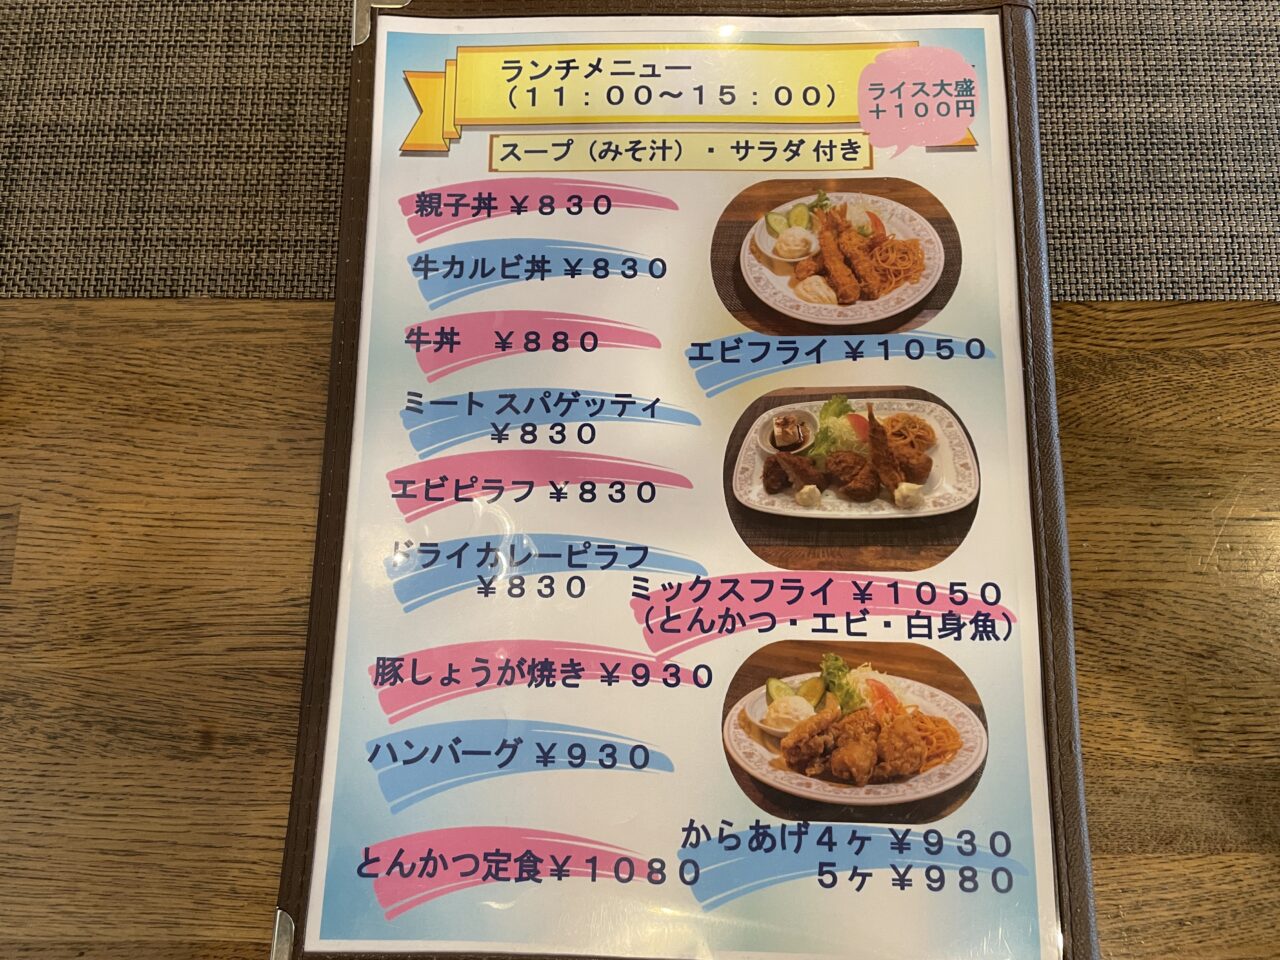 ランチメニュー
（１１：００〜１５：００）
ライス大盛
＋１００円
スープ（みそ汁）・サラダ付き
親子丼 ￥８３０
牛カルビ丼 ￥８３０
牛丼　￥８８０
ミート スパゲッティ
￥８３０
エビピラフ ￥８３０
ドライカレーピラフ
￥８３０
豚しょうが焼き ￥９３０
ハンバーグ ￥９３０
とんかつ定食￥１０８０
エビフライ ￥１０５０
ミックスフライ ￥１０５０
（とんかつ・エビ・白身魚）
からあげ４ヶ ￥９３０
５ヶ ￥９８０